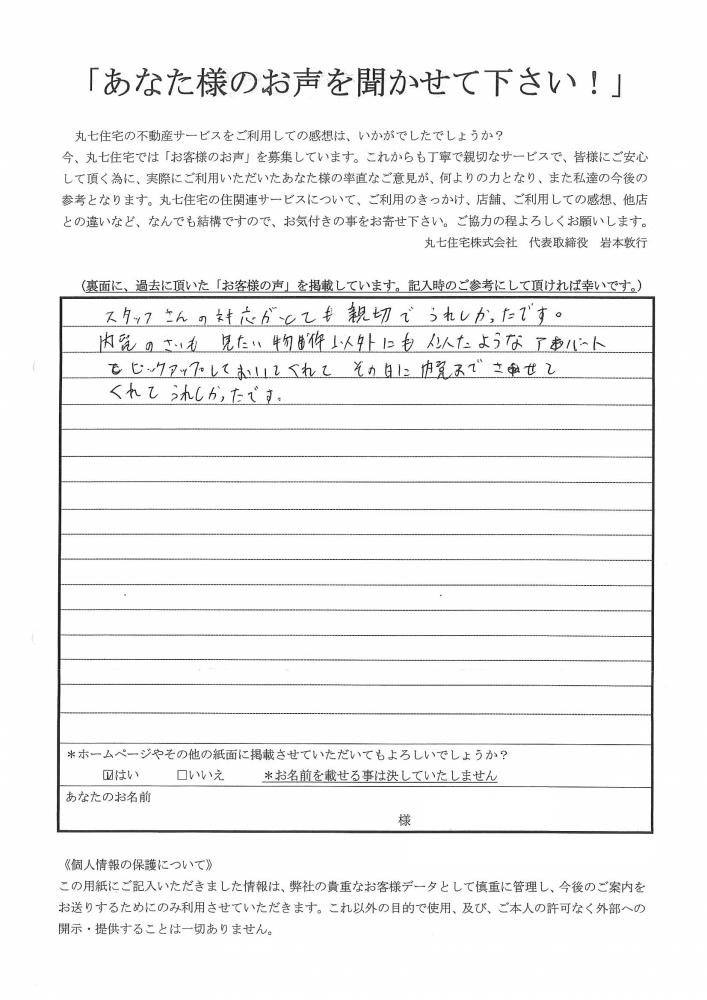 「あなた様のお声を聞かせて下さい！」
丸七住宅の不動産サービスをご利用しての感想は、いかがでしたでしょうか？
今、丸七住宅では「お客様のお声」を募集しています。これからも丁寧で親切なサービスで、皆様にご安心
して頂く為に、実際にご利用いただいたあなた様の率直なご意見が、何よりの力となり、また私達の今後の
参考となります。丸七住宅の住関連サービスについて、ご利用のきっかけ、店舗、ご利用しての感想、他店
との違いなど、なんでも結構ですので、お気付きの事をお寄せ下さい。ご協力の程よろしくお願いします。
丸七住宅株式会社　代表取締役　岩本敦行
（裏面に、過去に頂いた「お客様の声」を掲載しています。記入時のご参考にして頂ければ幸いです。）
スタッフさんの対応がとても親切でうれしかったです。
内覧のさいも 見たい物件以外にも 似たようなアパート
をピックアップしておいてくれて その日に内覧までさせて
くれてうれしかったです。
＊ホームページやその他の紙面に掲載させていただいてもよろしいでしょうか？
☑はい　□いいえ　＊お名前を載せる事は決していたしません
あなたのお名前
様
《個人情報の保護について》
この用紙にご記入いただきました情報は、弊社の貴重なお客様データとして慎重に管理し、今後のご案内を
お送りするためにのみ利用させていただきます。これ以外の目的で使用、及び、ご本人の許可なく外部への
開示・提供することは一切ありません。